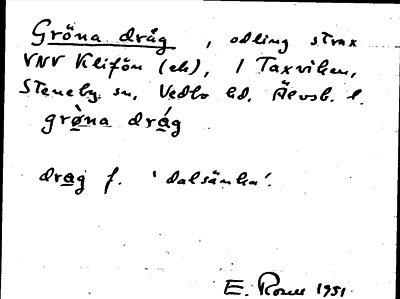 Gröna dråg, odling strax
VNV Klifön (ek), I Taxviken,
Steneby sn, Vedbo hd. Älvsb. l.
grø̀na drág
drag f. 'dalsänka'.
E. 1951